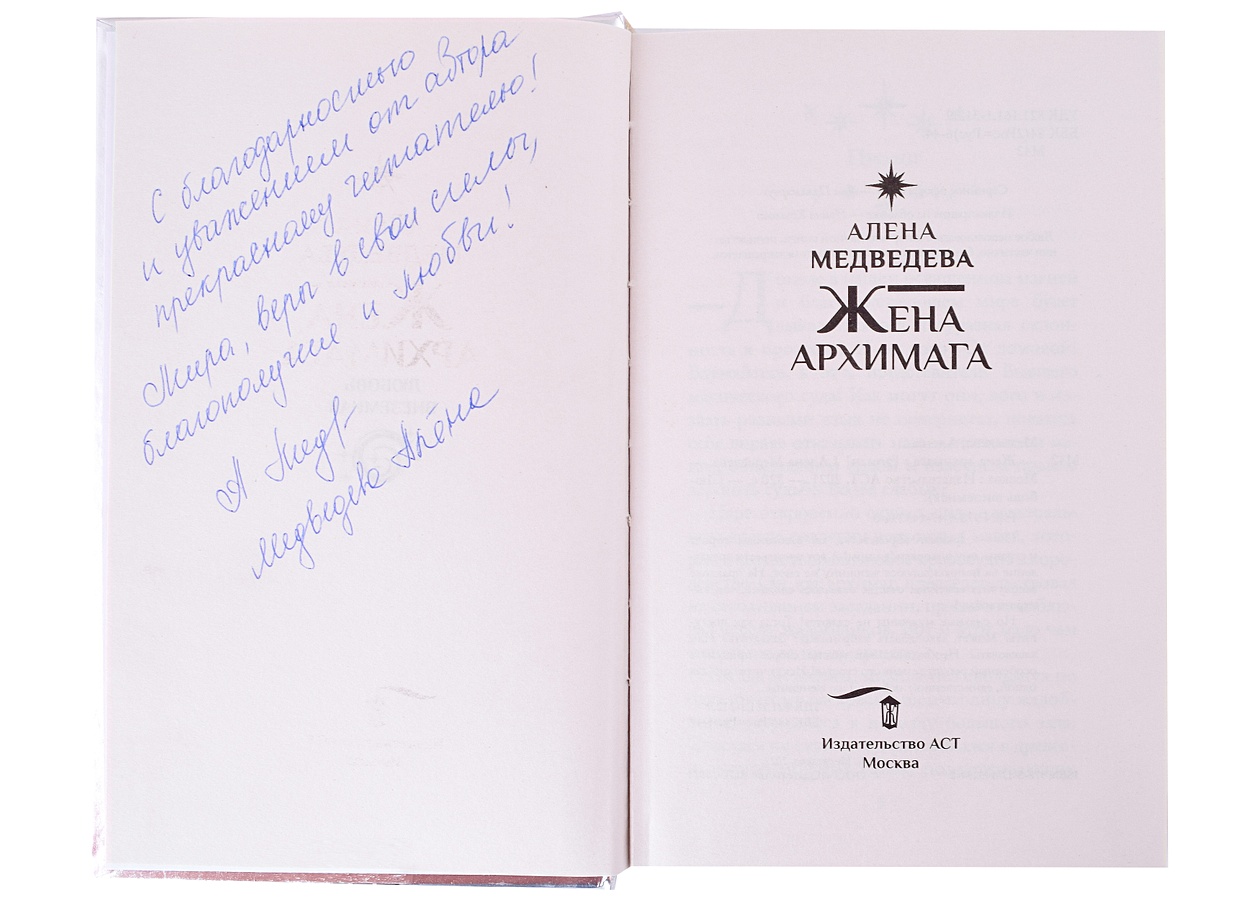 С благодарностью
и уважением от автора
прекрасному читателю!
Мира, веры в свои силы,
благополучия и любви!
А. Медв-
Медведева Алёна
АЛЕНА
МЕДВЕДЕВА
ЖЕНА
АРХИМАГА
Издательство АСТ
Москва